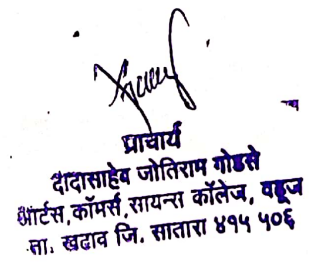 प्राचार्य
दादासाहेब जोतिराम गोडसे
आर्टस,कॉमर्स,सायन्स कॉलेज, वडूज
ता. खटाव जि. सातारा ४१५ ५०६